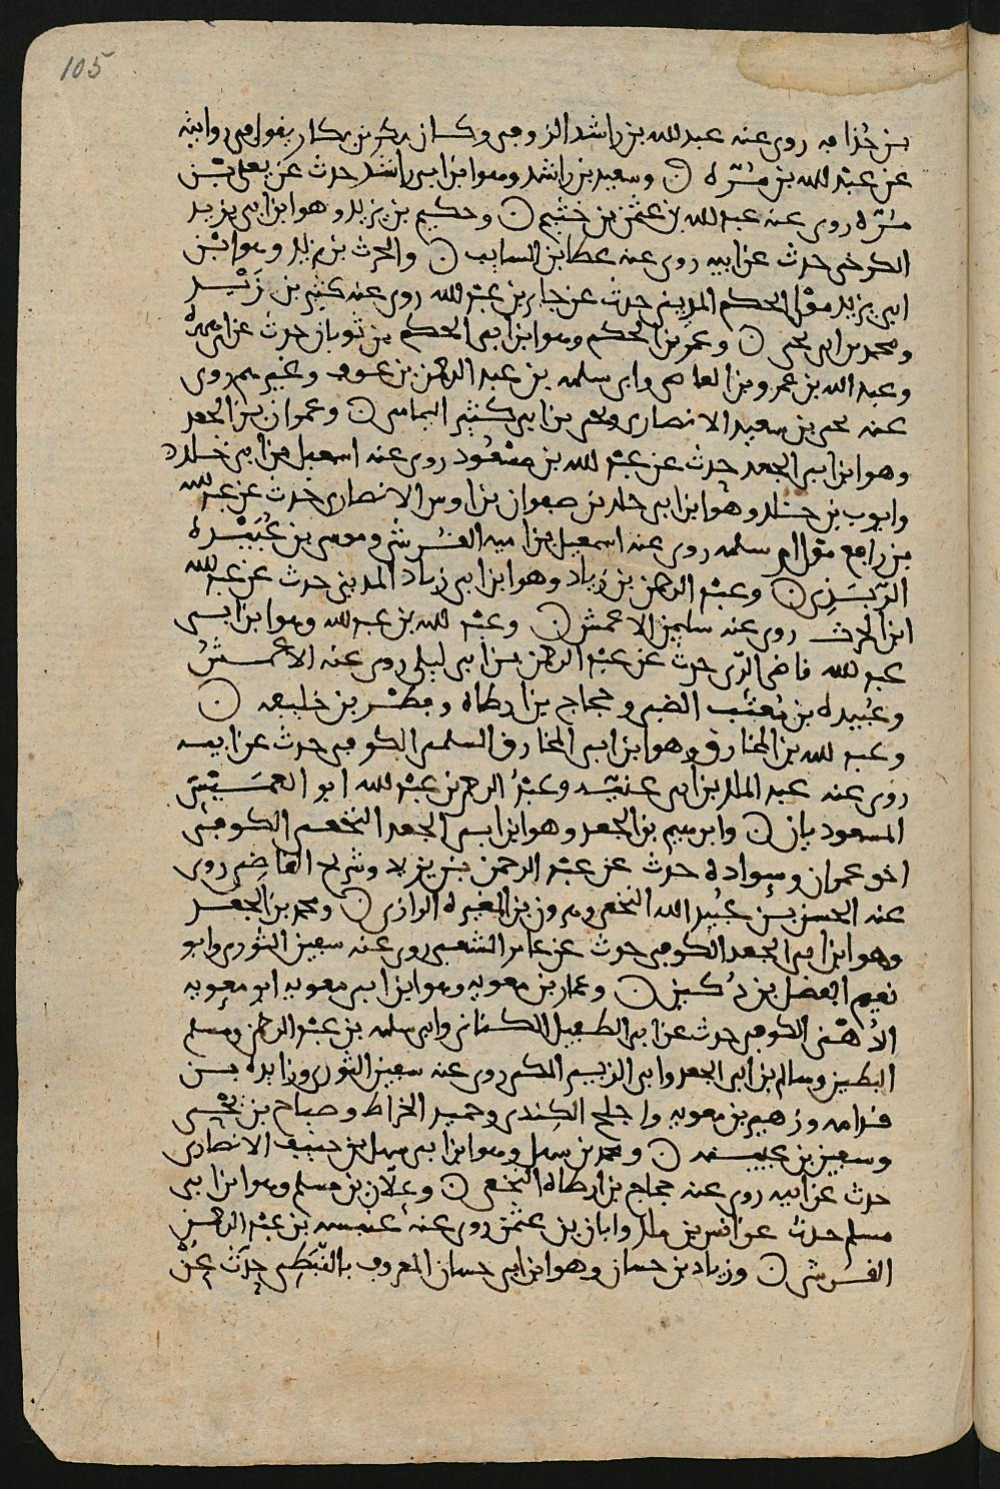 105
بن حذافه روى عنه عبد الله بن راشد الزوفى وكان بكر بن بكار يقول فى روايته
عن عبد الله بن مُرّه ۞ وسعيد بن راشد وهو ابن ابى راشد حدث عن يعلى بن
مُرّه روى عنه عبد الله بن عثمن بن خثيم ۞ وحكيم بن يزيد وهو ابن ابى يزيد
الكرخى حدث عن ابيه روى عنه عطا بن السايب ۞ والحرث بن يزيد وهو ابن
ابى يزيد مولى الحكم المدينى حدث عن جابر بن عبد الله روى عنه كثير بن زَيْد
ومحمد بن ابى يحيى ۞ وعمر بن الحكم وهو ابن ابى الحكم بن ثوبان حدث عن ابى هريره
وعبد الله بن عمرو بن العاصى وابى سلمه بن عبد الرحمن بن عوف وغيرهم روى
عنه يحيى بن سعيد الانصارى ويحيى بن ابى كثير اليمامى ۞ وعمران بن الجعد
وهو ابن ابى الجعد حدث عن عبد الله بن مسْعُود روى عنه اسمعيل بن ابى خالد ۞
وايوب بن خلد وهو ابن ابى خلد بن صفوان بن اوس الانصارى حدث عن عبد الله
بن رافع مولى ام سلمه روى عنه اسمعيل بن اميه القرشى وموسى بن عُبَيْده
الرّبَذِى ۞ وعبد الرحمن بن زياد وهو ابن ابى زياد المدينى حدث عن عبد الله
ابن الحرث روى عنه سليمن الاعمش ۞ وعبد الله بن عبد الله وهو ابن ابى
عبد الله قاضى الرّى حدث عن عبد الرحمن بن ابى ليلى روى عنه الاعمش
وعُبيده بن مُعتّب الضبى وحجاج بن ارطاه وفطْر بن خليفه ۞
وعبد الله بن المخارق وهو ابن ابى المخارق السلمى الكوفى حدث عن ابيه
روى عنه عبد الملك بن ابى غنيّه وعبد الرحمن بن عبد الله ابو العميس
المسعوديان ۞ وابرهيم بن الجعد وهو ابن ابى الجعد النخعى الكوفى
اخو عمران وسواده حدث عن عبد الرحمن بن يزيد وشريح القاضى روى
عنه الحسن بن عُبيد الله النخعى وهرون بن المغيره الرازى ۞ ومحمد بن الجعد
وهو ابن ابى الجعد الكوفى حدث عن عامر الشعبى روى عنه سفين الثورى وابو
نعيم الفضل بن دُكين ۞ وعمار بن معويه وهو ابن ابى معويه ابو معويه
الدُهْنى الكوفى حدث عن ابى الطفيل الكنانى وابى سلمه بن عبد الرحمن ومسلم
البطين وسالم بن ابى الجعد وابى الزبير المكى روى عنه سفين الثورى وزايده بن
قدامه وزهير بن معويه واجلح الكندى وحميد الخراط وصباح بن يحيى
وسفين بن عيينه ۞ ومحمد بن سهل وهو ابن ابى سهل بن حنيف الانصارى
حدث عن ابيه روى عنه حجاج بن ارطاه النخعى ۞ وعلان بن مسلم وهو ابن ابى
مسلم حدث عن انس بن ملك وابان بن عثمن روى عنه عنبسه بن عبد الرحمن
القرشى ۞ وزياد بن حسان وهو ابن ابى حسان المعروف بالنّبَطِى حدّث عن